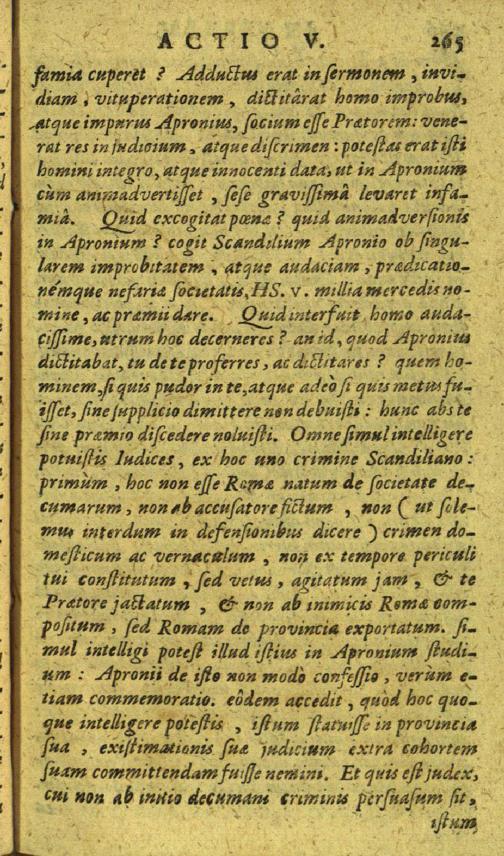 ACTIO V. 265
famia cuperet ? Adductus erat in sermonem, invi-
diam, vituperationem, dictitârat homo improbus,
atque impurus Apronius, socium esse Prætorem: vene-
rat res in judicium, atque discrimen: potestas erat isti
homini integro, atque innocenti data, ut in Apronium
cùm animadvertisset, sese gravissimâ levaret infa-
miâ. Quid excogitat pœnæ ? quid animadversionis
in Apronium ? cogit Scandilium Apronio ob singu-
larem improbitatem, atque audaciam, prædicatio-
némque nefariæ societatis, HS. v. millia mercedis no-
mine, ac præmii dare. Quid interfuit, homo auda-
cissime, utrum hoc decerneres ? an id, quod Apronius
dictitabat, tu de te proferres, ac dictitares ? quem ho-
minem, si quis pudor in te, atque adeò si quis metus fu-
isset, sine supplicio dimittere non debuisti: hunc abs te
sine præmio discedere noluisti. Omne simul intelligere
potuistis Iudices, ex hoc uno crimine Scandiliano:
primùm, hoc non esse Romæ natum de societate de-
cumarum, non ab accusatore fictum, non ( ut sole-
mus interdum in defensionibus dicere ) crimen do-
mesticum ac vernaculum, non ex tempore periculi
tui constitutum, sed vetus, agitatum jam, & te
Prætore jactatum, & non ab inimicis Romæ com-
positum, sed Romam de provincia exportatum. si-
mul intelligi potest illud istius in Apronium studi-
um: Apronii de isto non modò confessio, verùm e-
tiam commemoratio. eôdem accedit, quòd hoc quo-
que intelligere potestis, istum statuisse in provincia
sua, existimationis suæ judicium extra cohortem
suam committendam fuisse nemini. Et quis est judex,
cui non ab initio decumani criminis persuasum sit,
istum